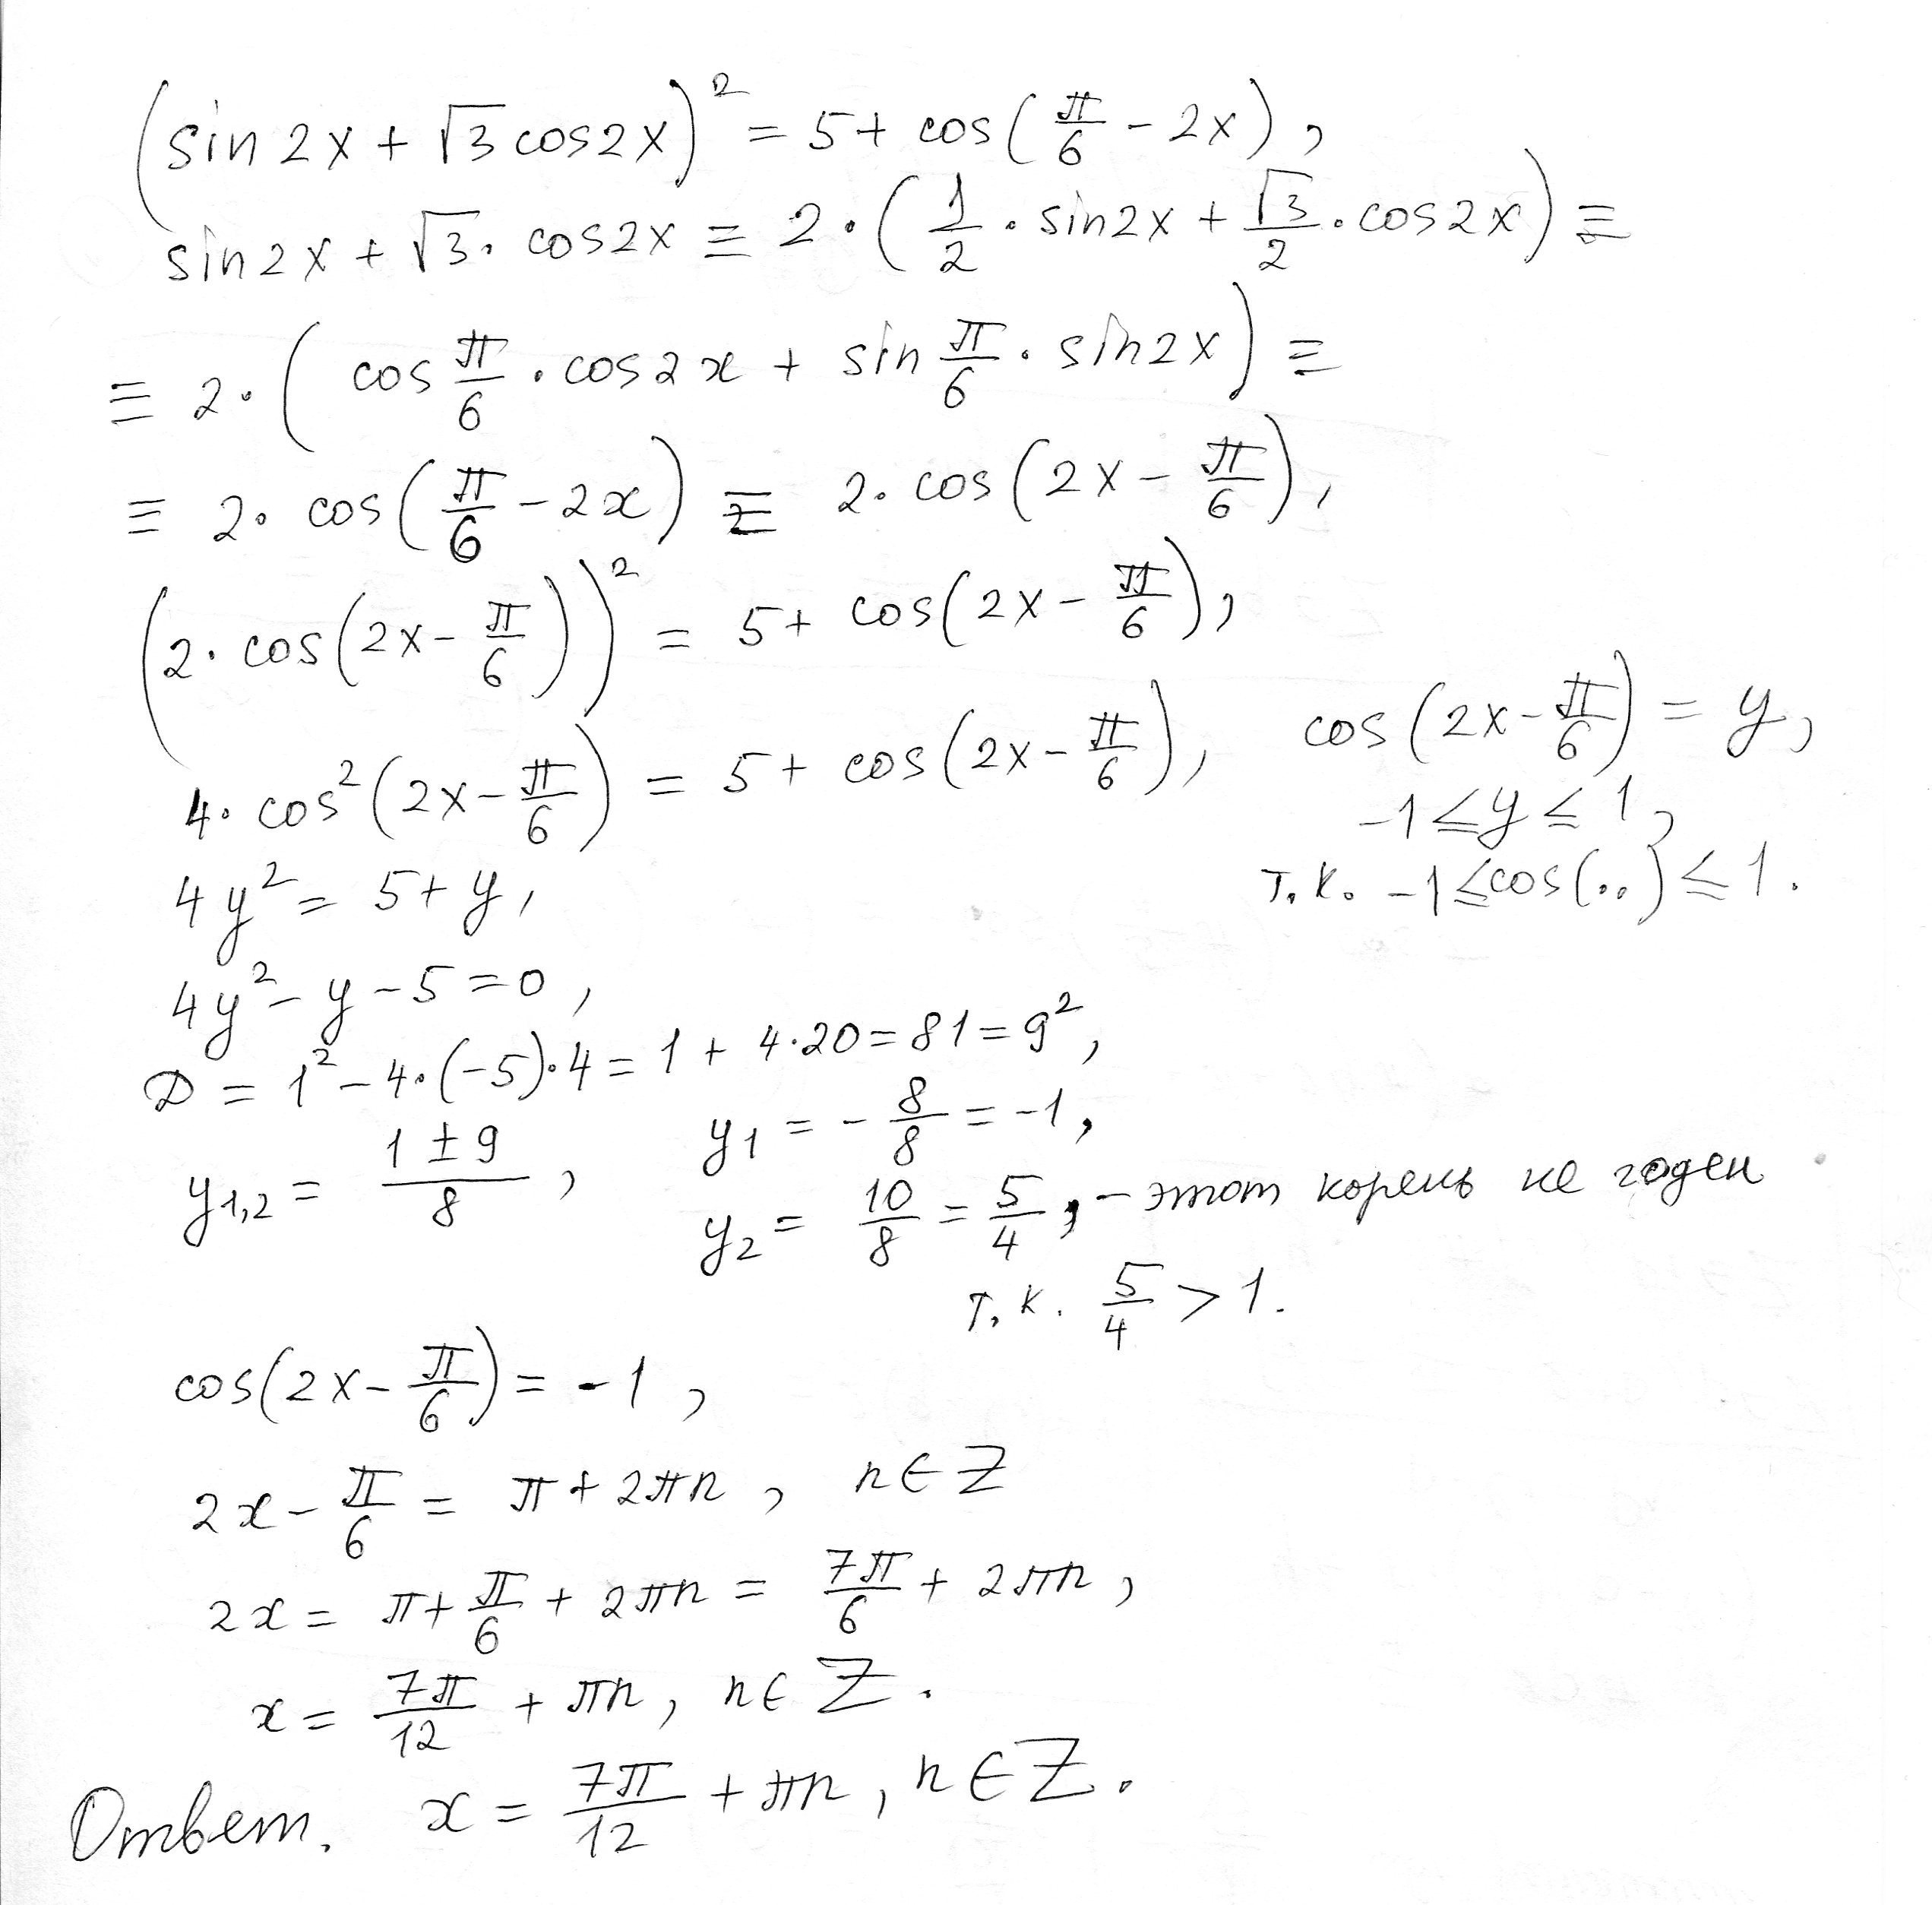 (sin 2x + √3 cos2x)² = 5 + cos(π/6 - 2x),
sin2x + √3 · cos2x ≡ 2·(1/2 · sin2x + √3/2 · cos2x) ≡
≡ 2·(cos π/6 · cos2x + sin π/6 · sin2x) ≡
≡ 2· cos(π/6 - 2x) ≡ 2· cos(2x - π/6),
(2· cos(2x - π/6))² = 5 + cos(2x - π/6),
4· cos²(2x - π/6) = 5 + cos(2x - π/6), cos(2x - π/6) = y,
-1 ≤ y ≤ 1,
4y² = 5 + y, т.к. -1 ≤ cos(..) ≤ 1.
4y² - y - 5 = 0,
D = 1² - 4·(-5)·4 = 1 + 4·20 = 81 = 9²,
y1,2 = (1 ± 9)/8, y1 = - 8/8 = -1,
y2 = 10/8 = 5/4, - этот корень не годен
т.к. 5/4 > 1.
cos(2x - π/6) = -1,
2x - π/6 = π + 2πn, n ∈ Z
2x = π + π/6 + 2πn = 7π/6 + 2πn,
x = 7π/12 + πn, n ∈ Z.
Ответ. x = 7π/12 + πn, n ∈ Z.